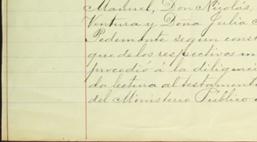 Manuel, Don Nicolás,
Ventura y Doña Julia
Pedemonte segun const
que de los respectivos in
procedió á la diligenci
da lectura al testament
del Ministerio Público